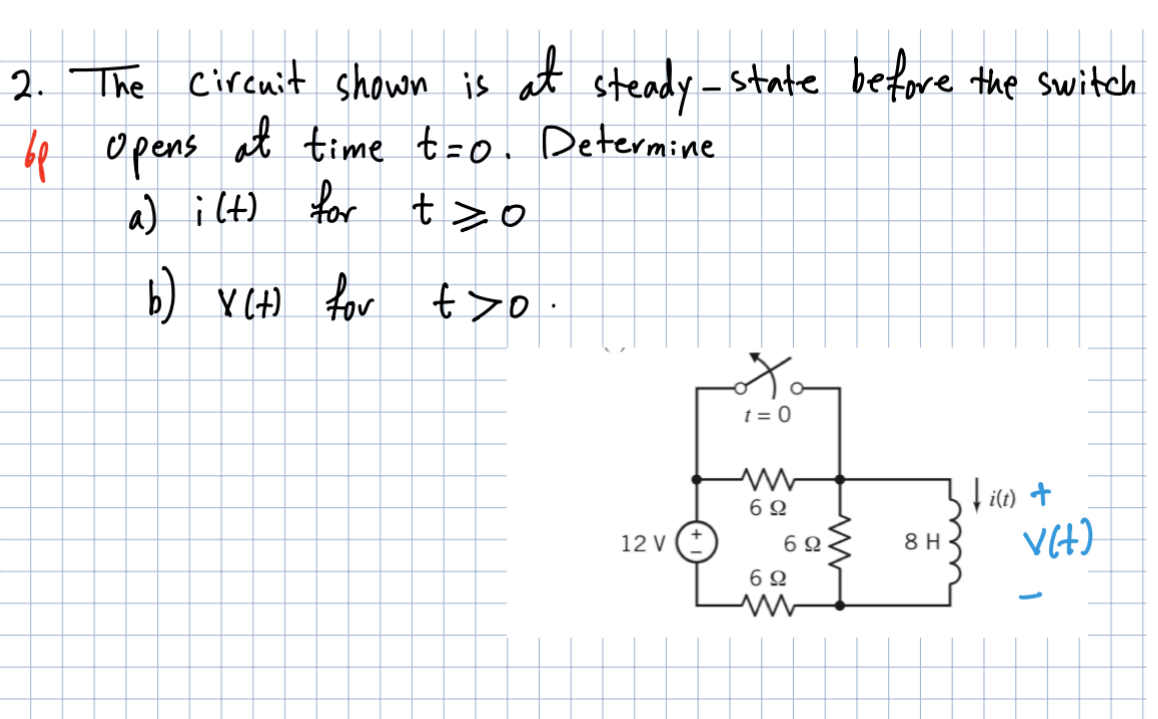 2. The circuit shown is at steady-state before the switch
6p opens at time t=0. Determine
a) i(t) for t ⩾ 0
b) v(t) for t > 0.
t = 0
6 Ω
i(t) +
12 V + −
6 Ω
8 H
v(t)
6 Ω
−